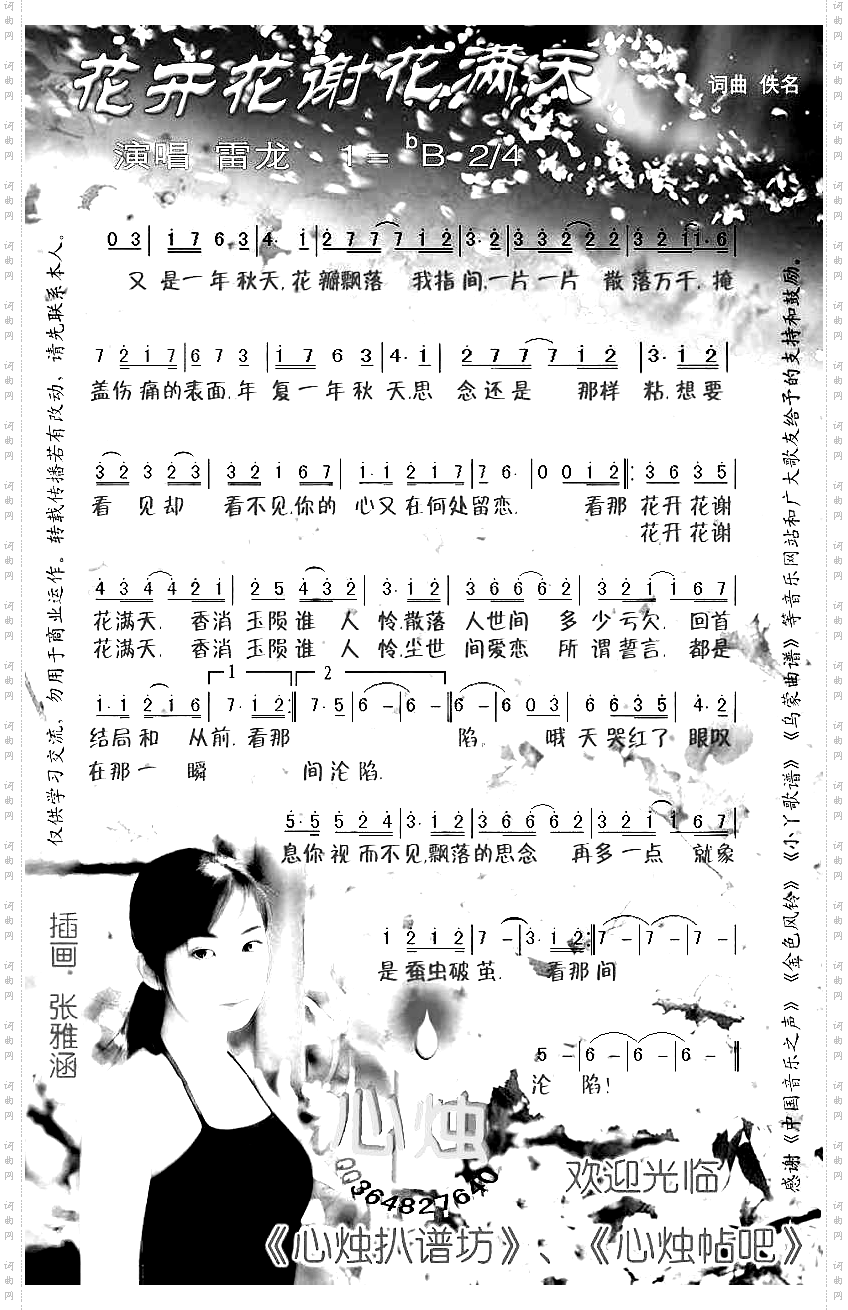 花开花谢花满天
词曲 佚名
演唱 雷龙 1= ᵇB 2/4
又是一年秋天,花瓣飘落 我指间,一片一片 散落万千,掩
盖伤痛的表面,年复一年秋天,思念还是 那样 粘,想要
看见却 看不见,你的心又在何处留恋. 看那花开花谢
花开花谢
花满天. 香消玉陨谁人怜,散落人世间 多少亏欠. 回首
花满天. 香消玉陨谁人怜,尘世间爱恋 所谓誓言. 都是
1 2
结局和 从前,看那 陷. 哦天哭红了眼叹
在那一瞬 间沦陷.
息你视而不见,飘落的思念 再多一点 就象
是蚕虫破茧. 看那间
沦陷!
仅供学习交流，勿用于商业运作。转载传播若有改动、请先联系本人。
感谢《中国音乐之声》《金色风铃》《小丫歌谱》《乌蒙曲谱》等音乐网站和广大歌友给予的支持和鼓励。
插画·张雅涵
心烛
QQ364827640
欢迎光临
《心烛扒谱坊》、《心烛帖吧》
词曲网